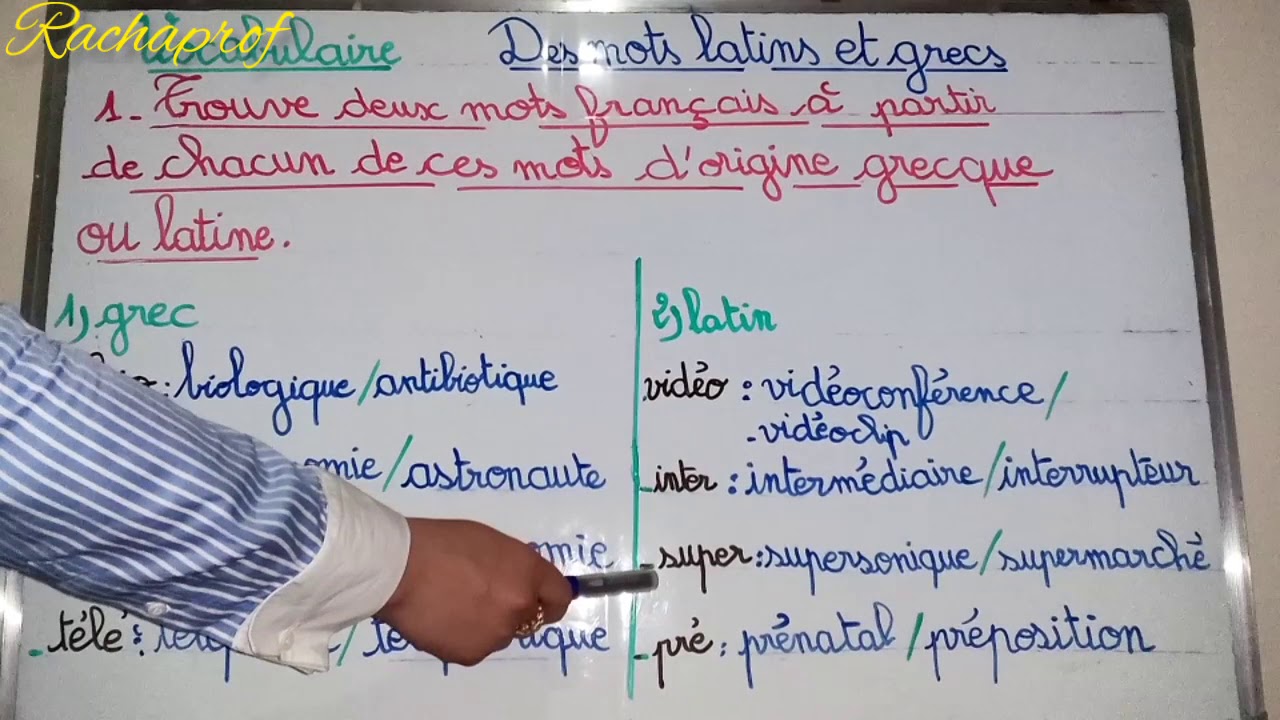 Rachaprof
Vocabulaire Des mots latins et grecs
1. Trouve deux mots français à partir
de chacun de ces mots d'origine grecque
ou latine.
1) grec
: biologique / antibiotique
/ astronaute
- télé :
2) latin
vidéo : vidéoconférence /
- vidéoclip
- inter : intermédiaire / interrupteur
- super : supersonique / supermarché
- pré : prénatal / préposition